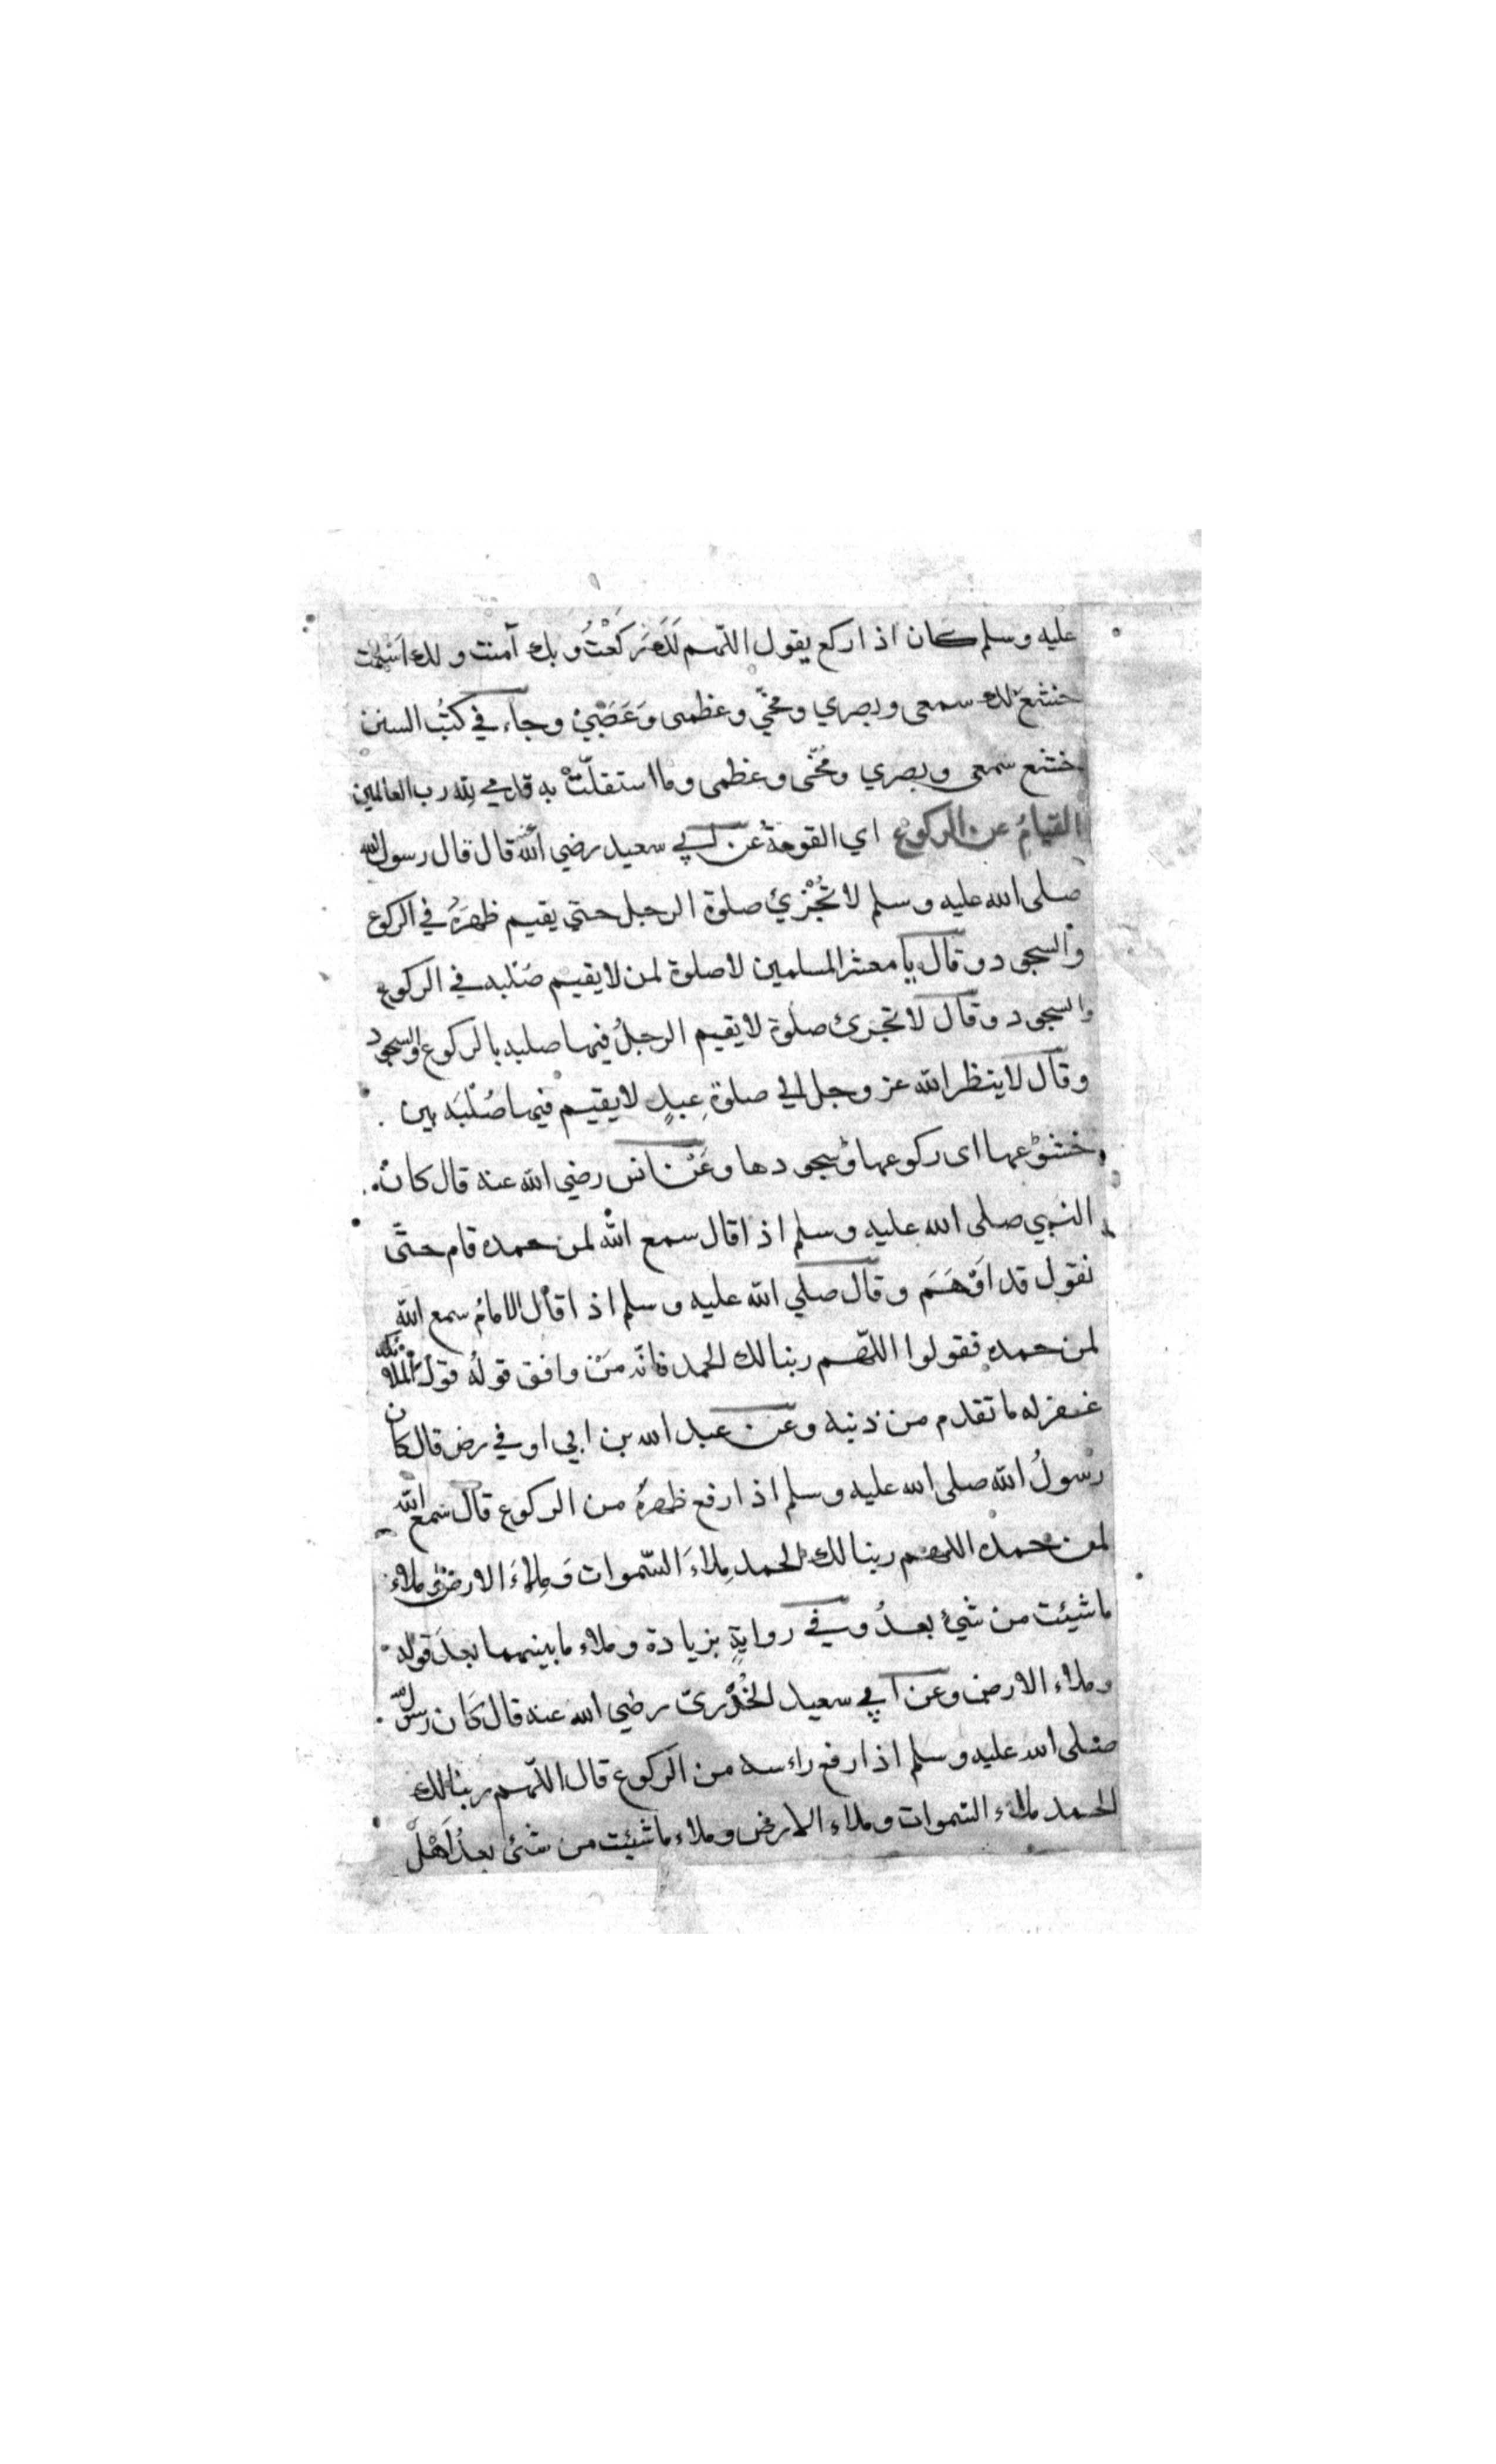 عليه وسلم كان اذا ركع يقول اللّهم لَكَ رَكَعْتُ وبك آمنت ولك اَسْلَمت
خشع لك سمعى وبصري ومخّي وعظمى وَعَصَبِيْ وجاء في كتُب السنن
خشع سمعى وبصري ومُخّى وعظمى وما استقلّتْ به قدمي لِلّه رب العالمين
القيامُ عن الركوع اي القومةُ عن ابي سعيد رضي الله عنه قال قال رسول الله
صلى الله عليه وسلم لا تُجْزِئ صلوة الرجل حتي يقيم ظهرَهُ في الركوع
والسجود وقال يا معشر المسلمين لا صلوة لمن لا يقيم صُلبه في الركوع
والسجود وقال لا تجزئ صلوة لا يقيم الرجلُ فيها صلبه بالركوع والسجود
وقال لا ينظر الله عز وجل الي صلوة عبدٍ لا يقيم فيها صُلْبَه بين
خشوعها اى ركوعها وسجودها وعَنْ انس رضي الله عنه قال كان
النبي صلى الله عليه وسلم اذا قال سمع الله لمن حمده قام حتَّى
نقول قد اَوْهَمَ وقال صلي الله عليه وسلم اذا قال الامامُ سمع الله
لمن حمده فقولوا اللّهم ربنا لك الحمد فانّه مَنْ وافق قولُه قولَ الملائكة
غفر له ما تقدم من ذنبه وعن عبد الله بن ابي اوفي رض قال كان
رسولُ الله صلى الله عليه وسلم اذا رفع ظهرهُ من الركوع قال سمع الله
لمن حمده اللهم ربنا لك الحمد مِلاءَ السّموات وَمِلاءَ الارض وملاء
ما شيئت من شيئ بعدُ وفي روايةٍ بزيادة وملاء ما بينهما بعدَ قوله
وملاء الارض وعن ابي سعيد الخُدْرىّ رضي الله عنه قال كَان رسول الله
صلى الله عليه وسلم اذا رفع راءسه من الركوع قال اللّهم ربنا لك
الحمد ملاء السّموات وملاء الارض وملاء ما شيئت من شئ بعدُ اَهْلَ